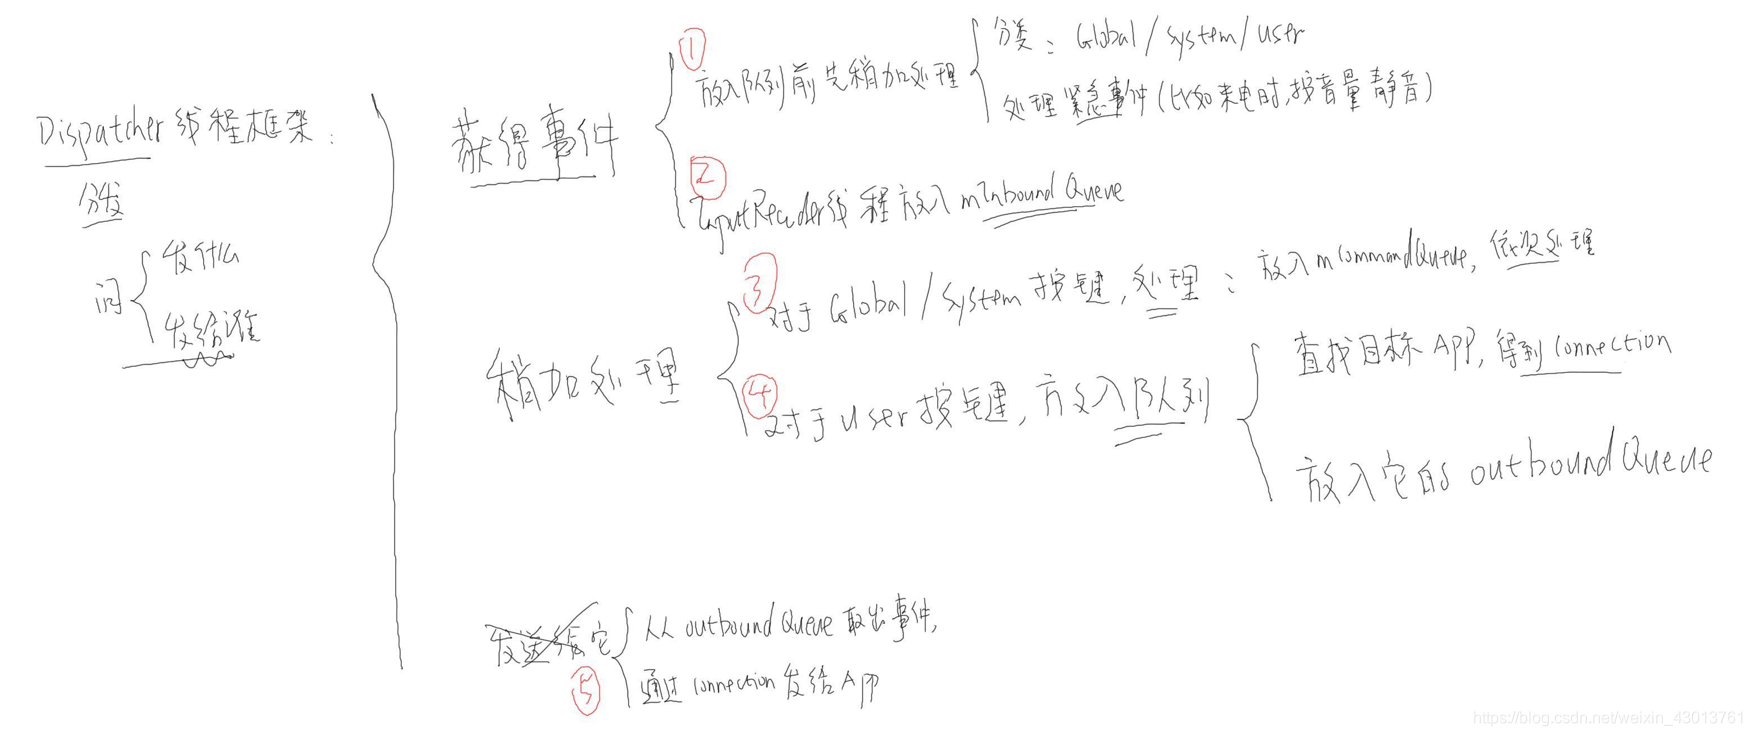 Dispatcher线程框架：
分发
问
发什么
发给谁
获得事件
①
放入队列前先稍加处理
分类：Global/system/user
处理紧急事件(比如来电时,按音量静音)
②
InputReader线程放入mInboundQueue
稍加处理
③
对于Global/System按键,处理：放入mCommandQueue,依次处理
④
对于user按键,放入队列
查找目标APP,得到connection
放入它的outboundQueue
发送给它
⑤
从outboundQueue取出事件,
通过connection发给APP
https://blog.csdn.net/weixin_43013761